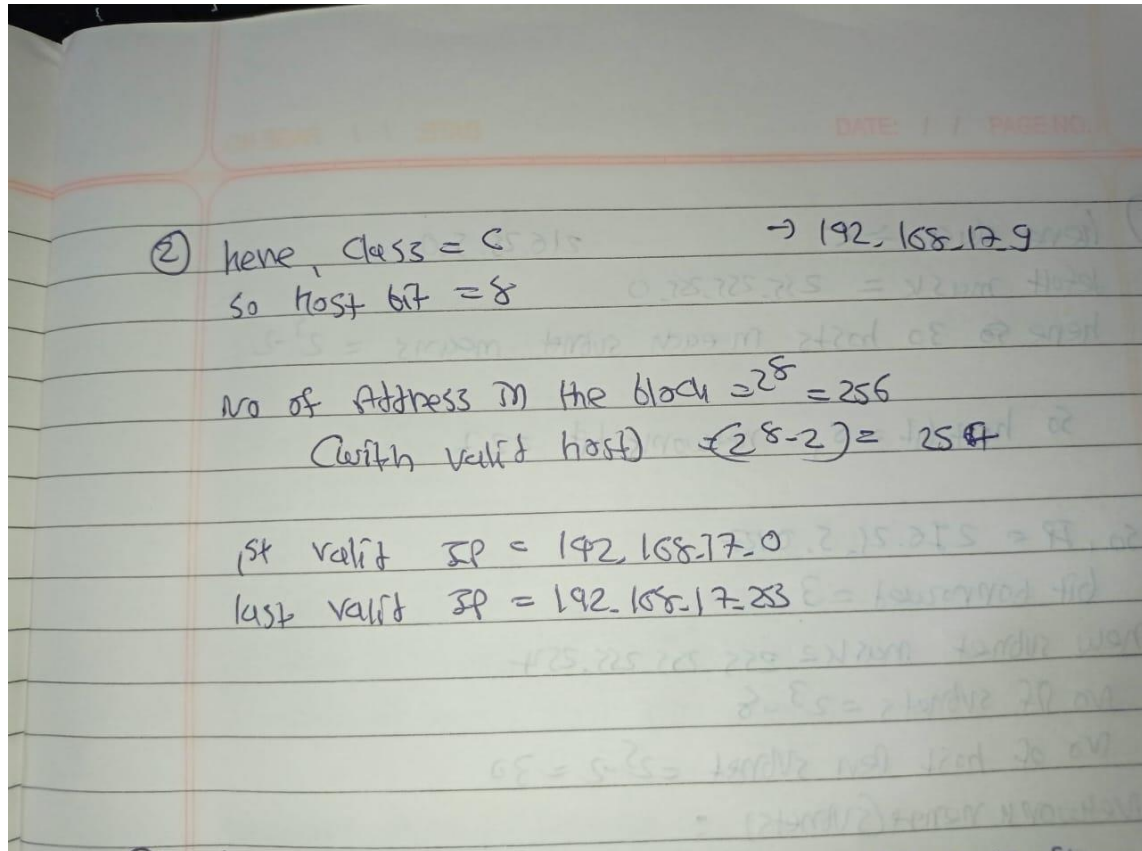 DATE: / / PAGE NO.
② here, Class = C → 192.168.17.9
so Host bit = 8
No of Address in the block = 2^8 = 256
(with valid host) = (2^8-2) = 254
1st valid IP = 192.168.17.0
last valid IP = 192.168.17.253